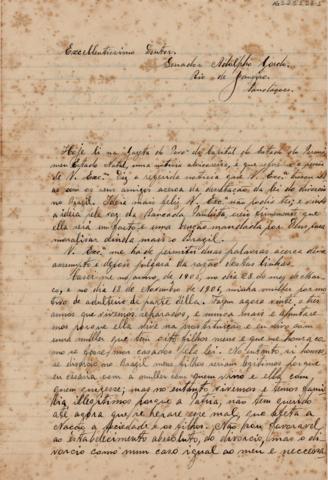 Excellentissimo Doutor.
Senador Adolpho Gordo.
Rio de Janeiro.
Hoje li na "Gazeta do Povo" da Capital do Estado do
meu Estado Natal, uma noticia alviçareira, é que
de V. Exc.ª Diz a referida noticia que V. Exc.ª
com os seus amigos acerca da decretação da lei do divorcio
no Brazil. mais feliz V. Exc.ª não podia ser, e sendo
a ideia pela voz da Bancada Paulista
ella será um facto, e uma benção mandada por Deus, para
moralizar ainda mais o Brazil.
V. Exc.ª me ha de permittir duas palavras acerca deste
assumpto e depois julgará da razão destas linhas.
Casei-me no anno de 1905, no dia 23 de
e no dia 13 de Novembro de 1906, minha mulher por mo
tivo de adulterio de parte della. Fazem agora vinte e tres
annos que vivemos separados, e nunca mais
mos porque ella vive na prostituição e eu vivo com
uma mulher que tem sete filhos meus e que me honra co
mo se fossemos casados pela lei. No entanto si houves
se divorcio no Brazil, meus filhos seriam legitimos porque
eu casaria com a mulher com quem vivo e ella com
quem quizesse; mas no entanto vivemos e temos fami
lia illegitimos porque a Patria, não tem querido
até agora que, se repare esse mal, que afeta a
Nação, a sociedade e os filhos. Não sou favoravel
ao estabelecimento absoluto, do divorcio, mas o di
vorcio como num caso igual ao meu e